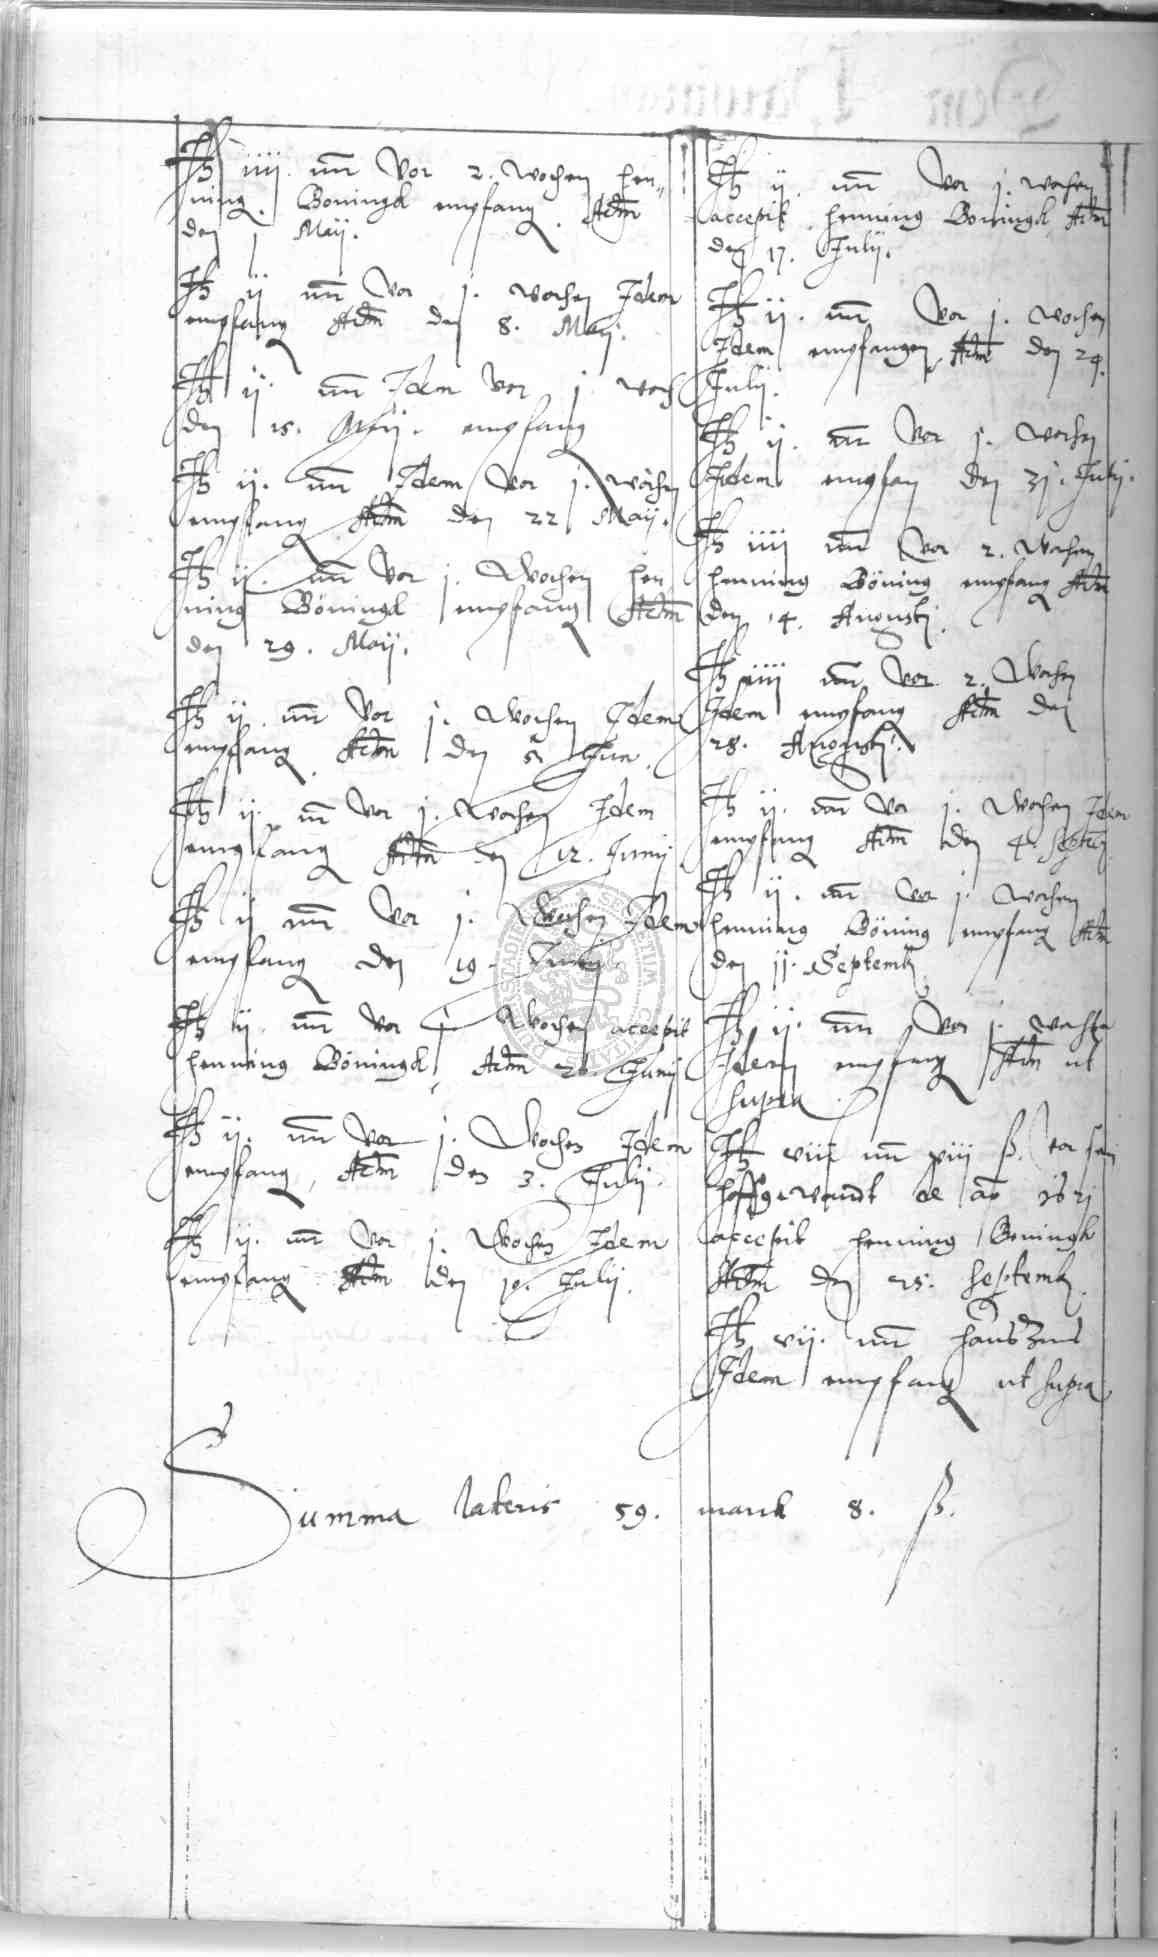 It iiij mr vor 2. wochen hen-
ning Boningk empfang. Actm
den 1 Maij.
It ij mr vor j. wochen Idem
empfang Actm den 8. Maij.
It ij mr Idem vor j woch
den 15. Maij. empfang
It ij. mr Idem vor j. wochen
empfang Actm den 22 Maij.
It ij. mr vor j. Wochen Hen
ning Böningk empfang Actm
den 29. Maij.
It ij. mr vor j. Wochen Idem
empfang Actm den 5 Jun.
It ij. mr vor j. Wochen Idem
empfang Actm den 12. Junij
It ij mr vor j. Wochen Idem
empfang den 19. Junij.
It ij mr vor j Wochen accepit
Henning Böningk, Actm Junij
It ij. mr vor j. Wochen Idem
empfang, Actm den 3. Julij.
It ij. mr vor j. Wochen Idem
empfang Actm den 10. Julij.
It ij. mr vor j. wochen
accepit Henning Boningk Actm
den 17. Julij.
It ij. mr vor j. wochen
Idem empfangen, Actm den 24.
Julij.
It ij. mr vor j. Wochen
Idem empfan den 31. Julij.
It iiij mr vor 2. Wochen
Henning Böning empfang Actm
den 14. Augusti.
It iiij mr vor 2. Wochen
Idem empfang Actm den
28. Augusti.
It ij. mr vor j. Wochen Idem
empfang Actm den 4. Septēb
It ij. mr vor j. Wochen
Henning Böning empfang Actm
den 11. Septemb
It ij. mr vor j. wochen
Idem empfang Actm ut
supra.
It viij mr viij ß. vor sein
hoffgewandt de ao 1621
accepit Henning Boningk
Actm den 25. Septemb.
It vij. mr Haus Zins
Idem empfang ut supra
Summa lateris 59. marck 8. ß.